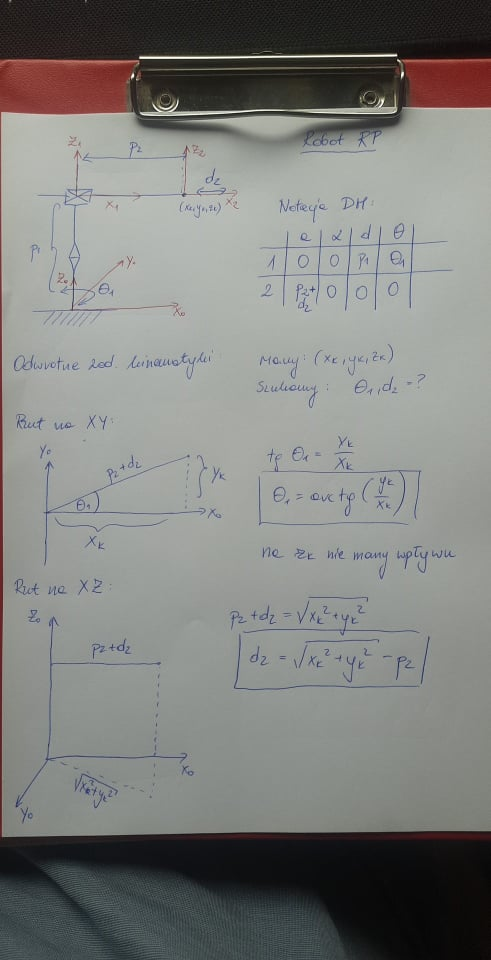 Robot RP
Z1
p2
Z2
d2
X1
(xk,yk,zk)
X2
p1
Z0
Y0
θ1
X0
Notacja DH:
a α d θ
1 0 0 p1 θ1
2 p2+d2 0 0 0
Odwrotne zad. kinematyki:
Mamy: (xk, yk, zk)
Szukamy: θ1, d2 = ?
Rzut na XY:
Y0
p2+d2
yk
θ1
X0
Xk
tg θ1 = yk/xk
θ1 = arctg(yk/xk)
na zk nie mamy wpływu
Rzut na XZ:
Z0
p2+d2
X0
Y0
√xk²+yk²
p2+d2 = √xk²+yk²
d2 = √xk²+yk² - p2